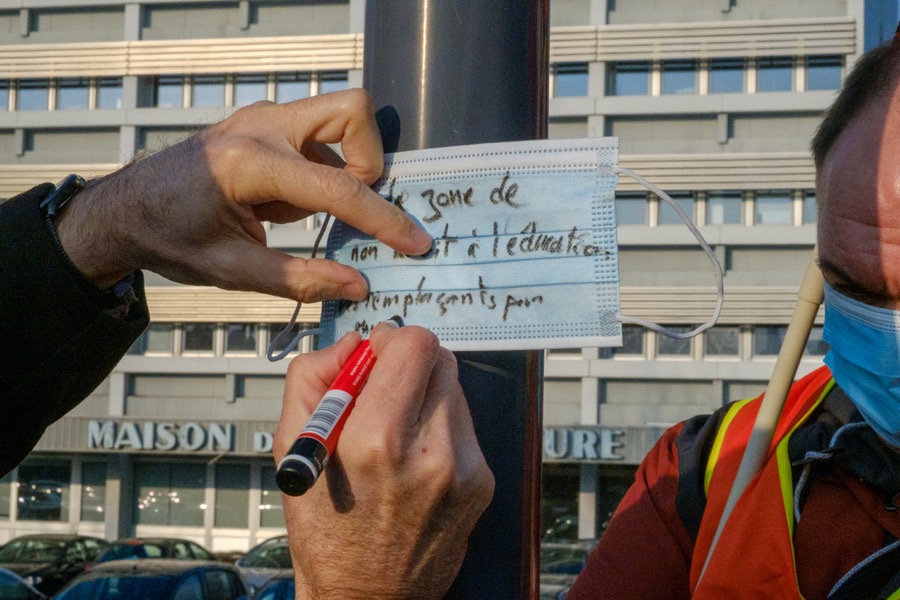 de zone de
non à l'éducation
remplaçants pour
MAISON D URE